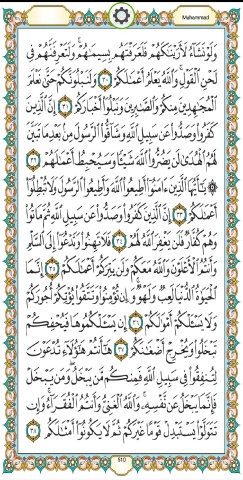 Muhammad
وَلَوْ نَشَآءُ لَأَرَيْنَٰكَهُمْ فَلَعَرَفْتَهُم بِسِيمَٰهُمْ ۚ وَلَتَعْرِفَنَّهُمْ فِى
لَحْنِ ٱلْقَوْلِ ۚ وَٱللَّهُ يَعْلَمُ أَعْمَٰلَكُمْ ٣٠ وَلَنَبْلُوَنَّكُمْ حَتَّىٰ نَعْلَمَ
ٱلْمُجَٰهِدِينَ مِنكُمْ وَٱلصَّٰبِرِينَ وَنَبْلُوَا۟ أَخْبَارَكُمْ ٣١ إِنَّ ٱلَّذِينَ
كَفَرُوا۟ وَصَدُّوا۟ عَن سَبِيلِ ٱللَّهِ وَشَآقُّوا۟ ٱلرَّسُولَ مِنۢ بَعْدِ مَا تَبَيَّنَ
لَهُمُ ٱلْهُدَىٰ لَن يَضُرُّوا۟ ٱللَّهَ شَيْـًٔا وَسَيُحْبِطُ أَعْمَٰلَهُمْ ٣٢
۞ يَٰٓأَيُّهَا ٱلَّذِينَ ءَامَنُوٓا۟ أَطِيعُوا۟ ٱللَّهَ وَأَطِيعُوا۟ ٱلرَّسُولَ وَلَا تُبْطِلُوٓا۟
أَعْمَٰلَكُمْ ٣٣ إِنَّ ٱلَّذِينَ كَفَرُوا۟ وَصَدُّوا۟ عَن سَبِيلِ ٱللَّهِ ثُمَّ مَاتُوا۟
وَهُمْ كُفَّارٌ فَلَن يَغْفِرَ ٱللَّهُ لَهُمْ ٣٤ فَلَا تَهِنُوا۟ وَتَدْعُوٓا۟ إِلَى ٱلسَّلْمِ
وَأَنتُمُ ٱلْأَعْلَوْنَ وَٱللَّهُ مَعَكُمْ وَلَن يَتِرَكُمْ أَعْمَٰلَكُمْ ٣٥ إِنَّمَا
ٱلْحَيَوٰةُ ٱلدُّنْيَا لَعِبٌ وَلَهْوٌ ۚ وَإِن تُؤْمِنُوا۟ وَتَتَّقُوا۟ يُؤْتِكُمْ أُجُورَكُمْ
وَلَا يَسْـَٔلْكُمْ أَمْوَٰلَكُمْ ٣٦ إِن يَسْـَٔلْكُمُوهَا فَيُحْفِكُمْ
تَبْخَلُوا۟ وَيُخْرِجْ أَضْغَٰنَكُمْ ٣٧ هَٰٓأَنتُمْ هَٰٓؤُلَآءِ تُدْعَوْنَ
لِتُنفِقُوا۟ فِى سَبِيلِ ٱللَّهِ فَمِنكُم مَّن يَبْخَلُ ۖ وَمَن يَبْخَلْ
فَإِنَّمَا يَبْخَلُ عَن نَّفْسِهِۦ ۚ وَٱللَّهُ ٱلْغَنِىُّ وَأَنتُمُ ٱلْفُقَرَآءُ ۚ وَإِن
تَتَوَلَّوْا۟ يَسْتَبْدِلْ قَوْمًا غَيْرَكُمْ ثُمَّ لَا يَكُونُوٓا۟ أَمْثَٰلَكُم ٣٨
510